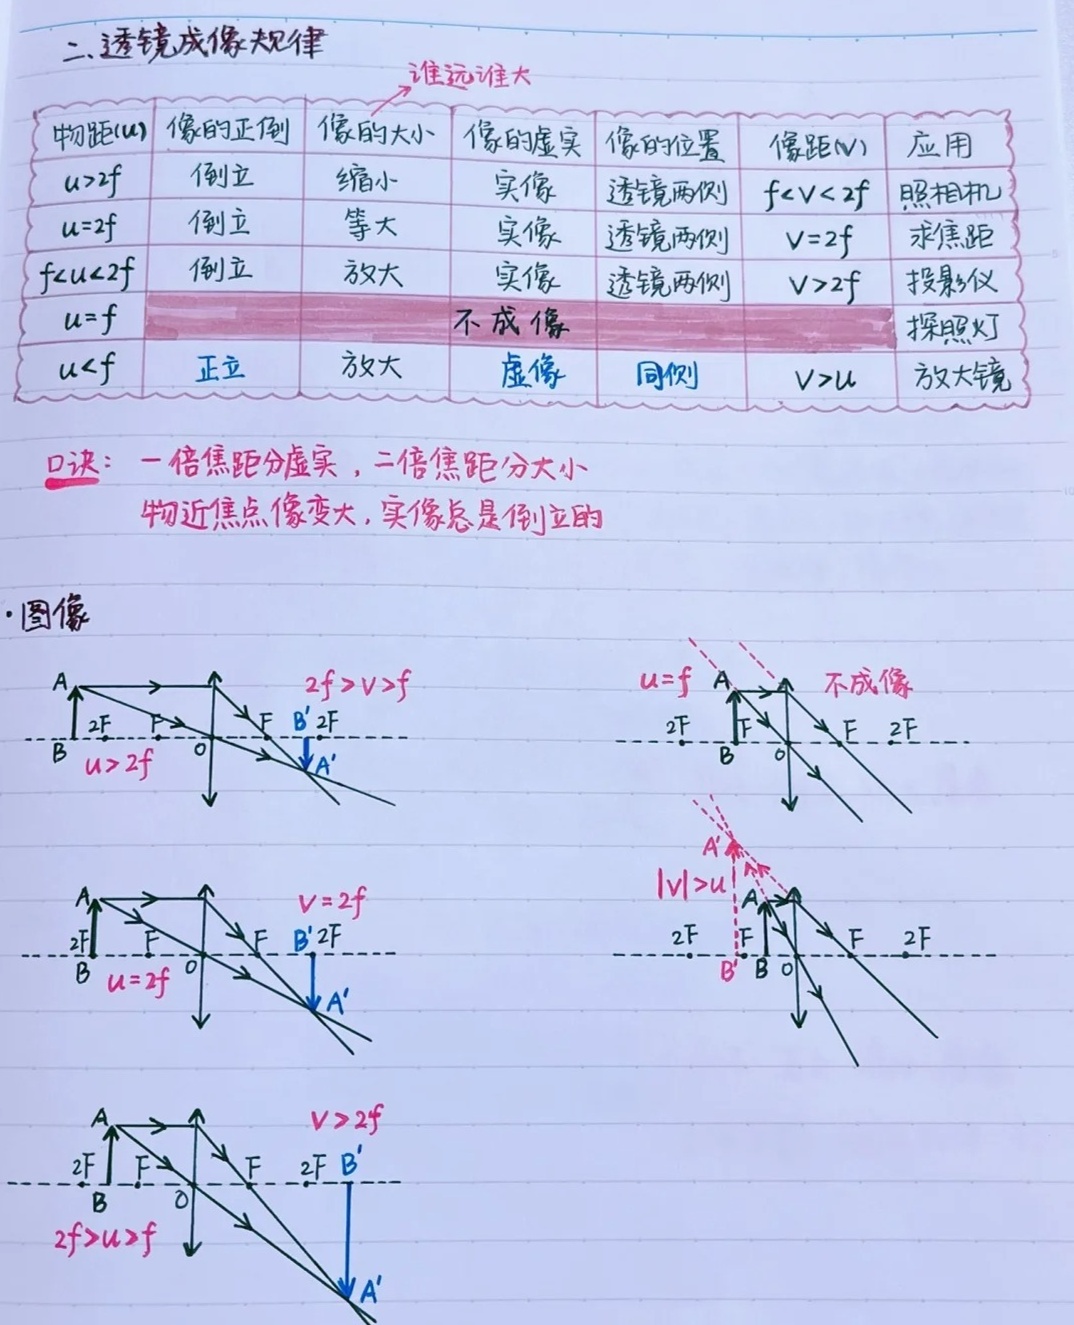 二、透镜成像规律
谁远谁大
物距(u) 像的正倒 像的大小 像的虚实 像的位置 像距(v) 应用
u>2f 倒立 缩小 实像 透镜两侧 f<v<2f 照相机
u=2f 倒立 等大 实像 透镜两侧 v=2f 求焦距
f<u<2f 倒立 放大 实像 透镜两侧 v>2f 投影仪
u=f 不成像 探照灯
u<f 正立 放大 虚像 同侧 v>u 放大镜
口诀: 一倍焦距分虚实, 二倍焦距分大小
物近焦点像变大, 实像总是倒立的
·图像
A 2f>v>f
2F F F B' 2F
B O A'
u>2f
u=f A 不成像
2F F F 2F
B O
A v=2f
2F F F B' 2F
B O A'
u=2f
A'
|v|>u
A
2F F F 2F
B' B O
A v>2f
2F F F 2F B'
B O
2f>u>f
A'